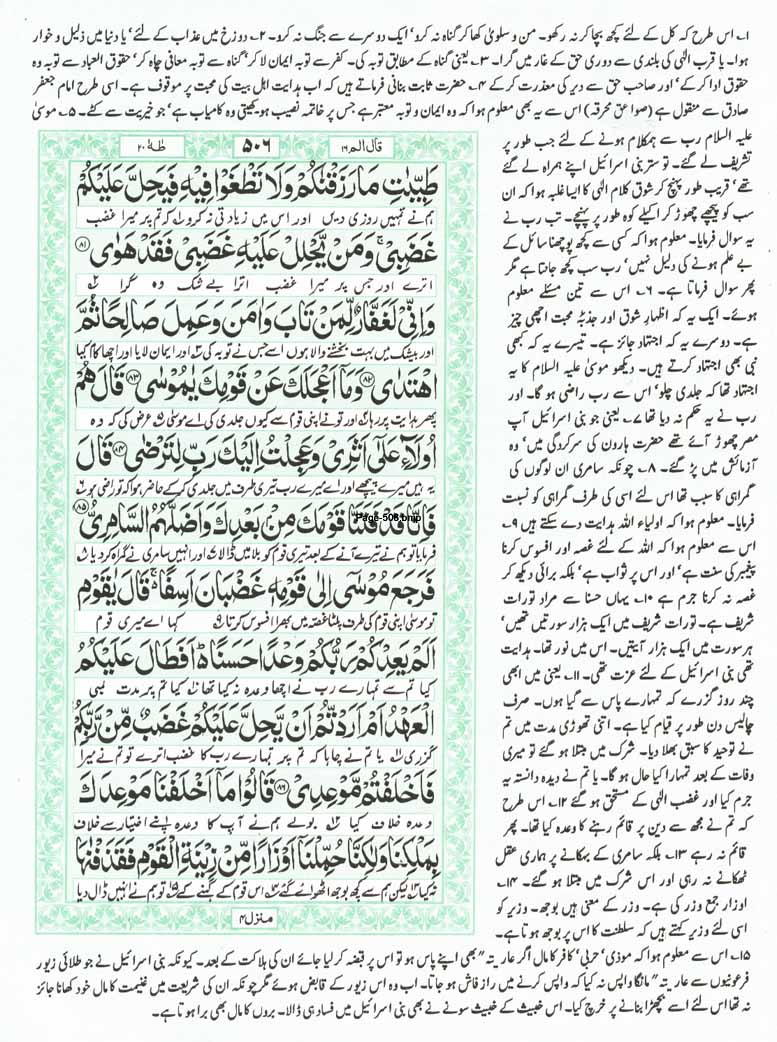 ۱۔ اس طرح کہ کل کے لئے کچھ بچا کر نہ رکھو۔ من و سلویٰ کھا کر گناہ نہ کرو' ایک دوسرے سے جنگ نہ کرو۔ ۲۔ دوزخ میں عذاب کے لئے' یا دنیا میں ذلیل و خوار
ہوا۔ یا قرب الٰہی کی بلندی سے دوری حق کے غار میں گرا۔ ۳۔ یعنی گناہ کے مطابق توبہ کی۔ کفر سے توبہ ایمان لا کر' گناہ سے توبہ معافی چاہ کر' حقوق العباد سے توبہ وہ
حقوق ادا کر کے' اور صاحب حق سے دیر کی معذرت کر کے ۴۔ حضرت ثابت بنانی فرماتے ہیں کہ اب ہدایت اہل بیت کی محبت پر موقوف ہے۔ اسی طرح امام جعفر
صادق سے منقول ہے (صواعق محرقہ) اس سے یہ بھی معلوم ہوا کہ وہ ایمان و توبہ معتبر ہے جس پر خاتمہ نصیب ہو۔ کھیتی وہ کامیاب ہے' جو خیریت سے کٹے۔ ۵۔ موسیٰ
علیہ السلام رب سے ہمکلام ہونے کے لئے جب طور پر
تشریف لے گئے۔ تو ستر بنی اسرائیل اپنے ہمراہ لے گئے
تھے' قریب طور پہنچ کر شوق کلام الٰہی کا ایسا غلبہ ہوا کہ ان
سب کو پیچھے چھوڑ کر اکیلے کوہ طور پر پہنچے۔ تب رب نے
یہ سوال فرمایا۔ معلوم ہوا کہ کسی سے کچھ پوچھنا سائل کے
بے علم ہونے کی دلیل نہیں' رب سب کچھ جانتا ہے مگر
پھر سوال فرماتا ہے۔ ۶۔ اس سے تین مسئلے معلوم
ہوئے۔ ایک یہ کہ اظہار شوق اور جذبہ محبت اچھی چیز
ہے۔ دوسرے یہ کہ اجتہاد جائز ہے۔ تیسرے یہ کہ کبھی
نبی بھی اجتہاد کرتے ہیں۔ دیکھو موسیٰ علیہ السلام کا یہ
اجتہاد تھا کہ جلدی چلو' اس سے رب راضی ہو گا۔ اور
رب نے یہ حکم نہ دیا تھا ۷۔ یعنی جو بنی اسرائیل آپ
مصر چھوڑ آئے تھے حضرت ہارون کی سرکردگی میں' وہ
آزمائش میں پڑ گئے۔ ۸۔ چونکہ سامری ان لوگوں کی
گمراہی کا سبب تھا اس لئے اسی کی طرف گمراہی کو نسبت
فرمایا۔ معلوم ہوا کہ اولیاء اللہ ہدایت دے سکتے ہیں ۹۔
اس سے معلوم ہوا کہ اللہ کے لئے غصہ اور افسوس کرنا
پیغمبر کی سنت ہے' اور اس پر ثواب ہے' بلکہ برائی دیکھ کر
غصہ نہ کرنا جرم ہے ۱۰۔ یہاں حسنا سے مراد تورات
شریف ہے۔ تورات شریف میں ایک ہزار سورتیں تھیں'
ہر سورت میں ایک ہزار آیتیں۔ اس میں نور تھا۔ ہدایت
تھی بنی اسرائیل کے لئے عزت تھی۔ ۱۱۔ یعنی میں ابھی
چند روز گزرے کہ تمہارے پاس سے گیا ہوں۔ صرف
چالیس دن طور پر قیام کیا ہے۔ اتنی تھوڑی مدت میں تم
نے توحید کا سبق بھلا دیا۔ شرک میں مبتلا ہو گئے تو میری
وفات کے بعد تمہارا کیا حال ہو گا۔ یا تم نے دیدہ دانستہ یہ
جرم کیا اور غضب الٰہی کے مستحق ہو گئے ۱۲۔ اس طرح
کہ تم نے مجھ سے دین پر قائم رہنے کا وعدہ کیا تھا۔ پھر
قائم نہ رہے ۱۳۔ بلکہ سامری کے بہکانے پر ہماری عقل
ٹھکانے نہ رہی اور اس شرک میں مبتلا ہو گئے۔ ۱۴۔
اوزار جمع وزر کی ہے۔ وزر کے معنی ہیں بوجھ۔ وزیر کو
اسی لئے وزیر کہتے ہیں کہ سلطنت کا اس پر بوجھ ہوتا ہے۔
قال الم ۱۶ ۵۰۶ طٰہٰ ۲۰
طَيِّبٰتِ مَا رَزَقْنٰكُمْ وَلَا تَطْغَوْا فِيْهِ فَيَحِلَّ عَلَيْكُمْ
ہم نے تمہیں روزی دیں اور اس میں زیادتی نہ کرو کہ تم پر میرا غضب
غَضَبِيْ ۚ وَمَنْ يَّحْلِلْ عَلَيْهِ غَضَبِيْ فَقَدْ هَوٰى ۝۸۱
اترے اور جس پر میرا غضب اترا بے شک وہ گرا
وَاِنِّيْ لَغَفَّارٌ لِّمَنْ تَابَ وَاٰمَنَ وَعَمِلَ صَالِحًا ثُمَّ
اور بیشک میں بہت بخشنے والا ہوں اسے جس نے توبہ کی اور ایمان لایا اور اچھا کام کیا
اهْتَدٰى ۝۸۲ وَمَآ اَعْجَلَكَ عَنْ قَوْمِكَ يٰمُوْسٰى ۝۸۳ قَالَ هُمْ
پھر ہدایت پر رہا اور تو نے اپنی قوم سے کیوں جلدی کی اے موسیٰ عرض کی کہ وہ
اُولَآءِ عَلٰٓى اَثَرِيْ وَعَجِلْتُ اِلَيْكَ رَبِّ لِتَرْضٰى ۝۸۴ قَالَ
یہ ہیں میرے پیچھے اور اے میرے رب تیری طرف میں جلدی کر کے حاضر ہوا کہ تو راضی ہو
فَاِنَّا قَدْ فَتَنَّا قَوْمَكَ مِنْۢ بَعْدِكَ وَاَضَلَّهُمُ السَّامِرِيُّ ۝۸۵
Page-506.bmp
فرمایا تو ہم نے تیرے آنے کے بعد تیری قوم کو بلا میں ڈالا اور انہیں سامری نے گمراہ کر دیا
فَرَجَعَ مُوْسٰٓى اِلٰى قَوْمِهٖ غَضْبَانَ اَسِفًا ۚ قَالَ يٰقَوْمِ
تو موسیٰ اپنی قوم کی طرف پلٹا غصہ میں بھرا افسوس کرتا کہا اے میری قوم
اَلَمْ يَعِدْكُمْ رَبُّكُمْ وَعْدًا حَسَنًا ۗ اَفَطَالَ عَلَيْكُمُ
کیا تم سے تمہارے رب نے اچھا وعدہ نہ کیا تھا کیا تم پر مدت لمبی
الْعَهْدُ اَمْ اَرَدْتُّمْ اَنْ يَّحِلَّ عَلَيْكُمْ غَضَبٌ مِّنْ رَّبِّكُمْ
گزری یا تم نے چاہا کہ تم پر تمہارے رب کا غضب اترے تو تم نے میرا
فَاَخْلَفْتُمْ مَّوْعِدِيْ ۝۸۶ قَالُوْا مَآ اَخْلَفْنَا مَوْعِدَكَ
وعدہ خلاف کیا بولے ہم نے آپ کا وعدہ اپنے اختیار سے خلاف
بِمَلْكِنَا وَلٰكِنَّا حُمِّلْنَآ اَوْزَارًا مِّنْ زِيْنَةِ الْقَوْمِ فَقَذَفْنٰهَا
نہ کیا لیکن ہم سے کچھ بوجھ اٹھوائے گئے اس قوم کے گہنے کے تو ہم نے انہیں ڈال دیا
منزل ۴
۱۵۔ اس سے معلوم ہوا کہ موذی' حربی' کافر کا مال اگر عاریتہ" بھی اپنے پاس ہو تو اس پر قبضہ کر لیا جائے ان کی ہلاکت کے بعد۔ کیونکہ بنی اسرائیل نے جو طلائی زیور
فرعونیوں سے عاریتہ" مانگا واپس نہ کیا کہ واپس کرنے میں راز فاش ہو جاتا۔ اب وہ اس زیور کے قابض ہوئے مگر چونکہ ان کی شریعت میں غنیمت کا مال خود کھانا جائز
نہ تھا اس لئے اسے بچھڑا بنانے پر خرچ کیا۔ اس خبیث کے خبیث سونے نے بھی بنی اسرائیل میں فساد ہی ڈالا۔ بروں کا مال بھی برا ہوتا ہے۔